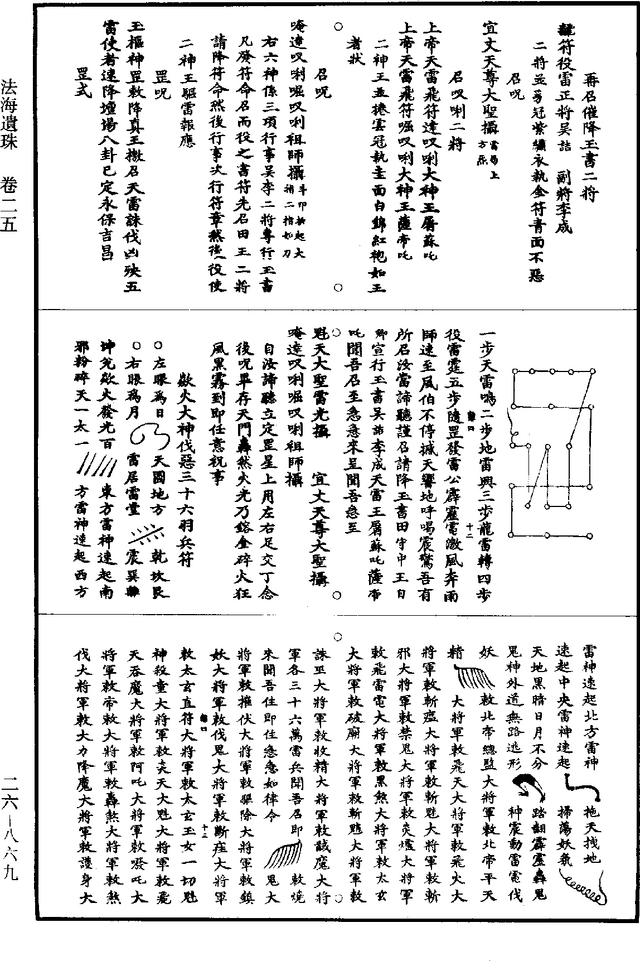 再召催降玉書二將
龍符役雷正將吳詰　副將李成
二將並芎冠紫繡衣執金符青面不惡
召呪
宜丈天尊大聖攝雷局上方煞
召叹唎二將
上帝天雷飛符達叹唎大神王屠蘇吒
上帝天雷飛符崛叹唎大神王薩帝吒
二神王並捲雲冠執圭面白錦紅袍如王
者狀
召呪
唵達叹唎崛叹唎祖師攝斗印掐起大指二指如刀
右六神係三項行事吳李二將專行玉書
凡發符命召而役之書符先召田王二將
請降符命然後行事次行符章然後役使
二神王驅雷報應
罡呪
玉樞神罡敕降真王檄召天雷誅伐凶殃五
雷使者速降壇場八卦已定永保吉昌
罡式
一步天雷鳴二步地雷興三步龍雷轉四步
役雷霆五步隨罡發雷公霹靂電激風奔雨
師速至風伯不停撼天響地呼喝震驚吾有
所召汝當諦聽謹召請降玉書田宇中王日
卿宣行玉書吳詰李成天雷王屠蘇吒薩帝
吒聞吾召至急急來至聞吾急至
魁天大聖雷光攝　宜丈天尊大聖攝
唵達叹唎崛叹唎祖師攝
自汝諦聽立定罡星上用左右足交丁念
後呪畢存天門轟然火光乃鎔金碎火狂
風黑霧到即任意祝事
歘火大神伐惡三十六羽兵符
左眼為日　天圓地方　乾坎艮
右眼為月　雷居雷霆　震巽離
坤兌歘火發光百　東方雷神速起南
邪粉碎天一太一　方雷神速起西方
雷神速起北方雷神　拖天找地
速起中央雷神速起　掃蕩妖氛
天地黑暗日月不分　踏翻霹靂轟鬼
鬼神外道無路逃形　神震動雷電伐
妖　敕北帝總監大將軍敕北帝平天
精　大將軍敕飛天大將軍敕飛火大
將軍敕斬瘟大將軍敕斬鬼大將軍敕斬
邪大將軍敕禁鬼大將軍敕炎爐大將軍
敕飛雷電大將軍敕黑煞大將軍敕太玄
大將軍敕破廟大將軍敕斬魈大將軍敕
誅巫大將軍敕收精大將軍敕馘魔大將
軍各三十六萬雷兵聞吾召即　敕燒
來聞吾住即住急急如律令　鬼大
將軍敕摧伏大將軍敕驅除大將軍敕鎮
妖大將軍敕伐鬼大將軍敕斷瘟大將軍
敕太玄直符大將軍敕太玄玉女一切魁
神殺童大將軍敕炎天大魁大將軍敕飛
天吞魔大將軍敕阿吒大將軍敕發吒大
將軍敕帝敕大將軍敕轟煞大將軍敕煞
伐大將軍敕大力降魔大將軍敕護身大
法海遺珠　卷二五
二六—八六九